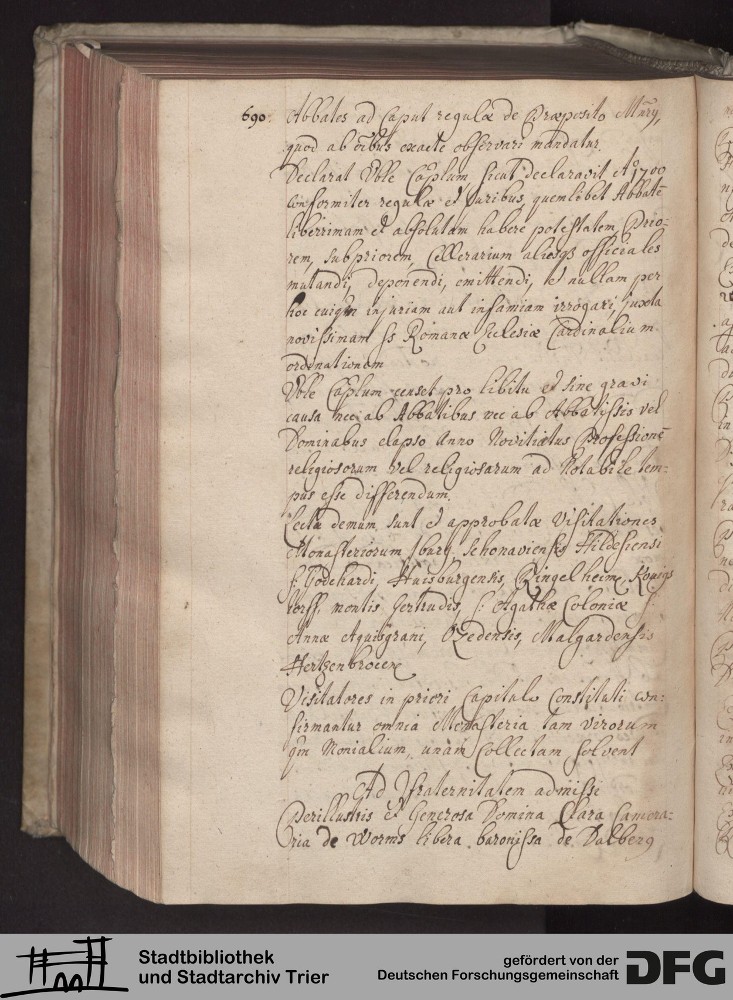 690. Abbates ad Caput regulæ de Præposito Mnrÿ,
quod ab oībus exacte observari mandatur.
Declarat Vble Caplum sicut declaravit Ao 1700
conformiter regulæ et Juribus, quemlibet Abbatē
liberrimam et absolutam habere potestatem, Prio=
rem, Subpriorem, Cellerarium aliosqs officiales
mutandi, deponendi, emittendi, et nullam per
hoc cuiqm injuriam aut infamiam irrogari, juxta
novissimam Ss Romanæ Ecclesiæ Cardinalium
ordinationem
Vble Caplum censet pro libitu et sine gravi
causa nec ab Abbatibus nec ab Abbatissis vel
Dominabus elapso Anno Novitiatus Professionē
religiosorum vel religiosarum ad Notabile tem=
pus esse differendum.
Lectæ demum sunt et approbatæ Visitationes
Monasteriorum Iburg, Schonaviensis Hildesiensi
S: Godehardi, Huisburgensis, Ringelheim, Konigs
torff, montis Gertrudis, S: Agathæ Coloniæ S:
Annæ Aquisgrani, Ozedensis, Malgardensis
Hertzenbrocen
Visitatores in priori Capitulo Constituti con=
firmantur omnia Monasteria tam virorum
qm Monialium unam Collectam solvent
Ad Fraternitatem admissi
Perillustris et Generosa Domina Clara Camera=
ria de Worms libera baronissa de Dalberg
Stadtbibliothek
und Stadtarchiv Trier
gefördert von der
Deutschen Forschungsgemeinschaft
DFG